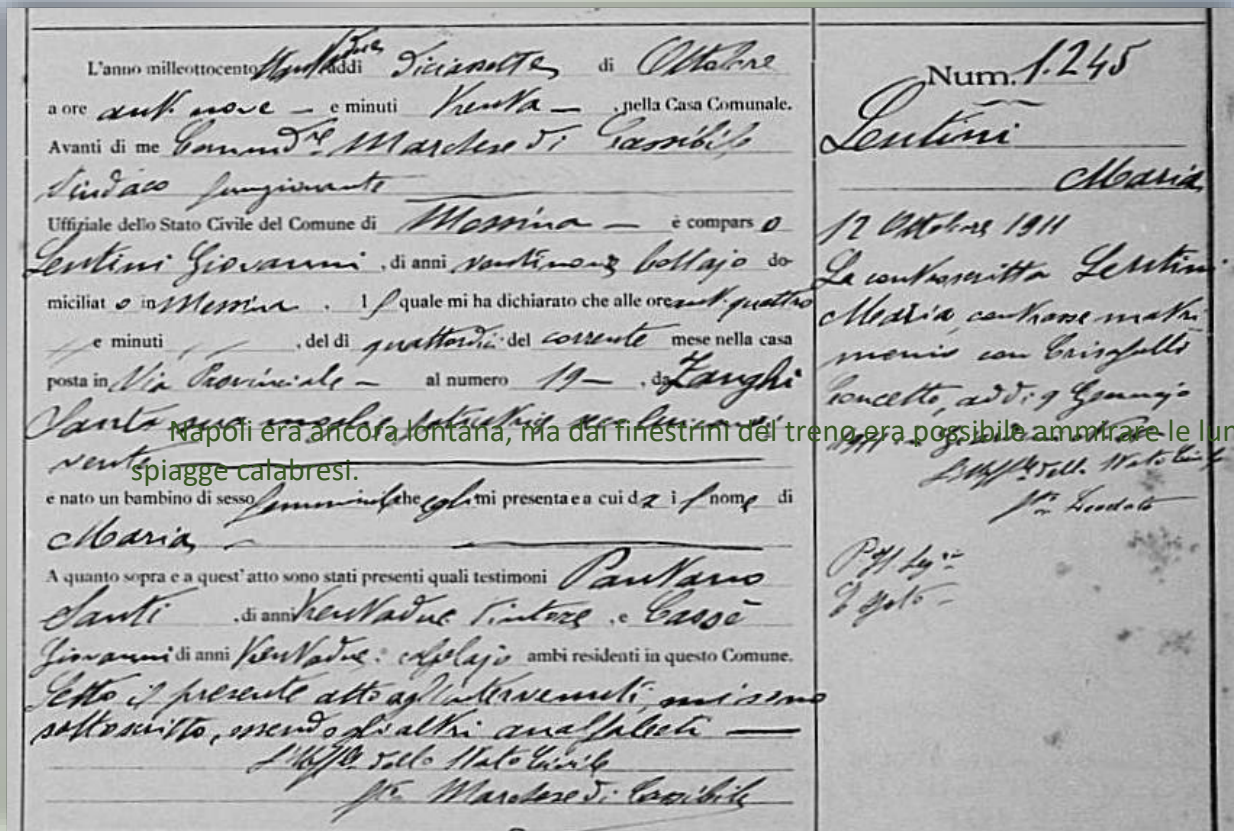 L'anno milleottocento addì diciassette di Ottobre
a ore ant. nove — e minuti trenta —, nella Casa Comunale.
Avanti di me Marchese di Cassibile
Sindaco funzionante
Uffiziale dello Stato Civile del Comune di Messina — è compars o
Lentini Giovanni, di anni bottajo do-
miciliat o in Messina. l quale mi ha dichiarato che alle ore ant. quattro
e minuti , del dì quattordici del corrente mese nella casa
posta in Via Provinciale — al numero 19 —, da Zanghi
Santa sua moglie
vente
Napoli era ancora lontana, ma dai finestrini del treno era possibile ammirare le lun
spiagge calabresi.
e nato un bambino di sesso femminile che egli mi presenta e a cui dà il nome di
Maria
A quanto sopra e a quest'atto sono stati presenti quali testimoni Pantano
Santi, di anni trentadue, e
Giovanni di anni trentadue ambi residenti in questo Comune.
Letto il presente atto agl'intervenuti,
sottoscritto, essendo gli altri analfabeti —
dello Stato Civile
Marchese di Cassibile
Num. 1.245
Lentini
Maria
12 Ottobre 1911
La controscritta Lentini
Maria, contrasse matri
monio con Crisafulli
Concetto, addì 9 Gennajo
1911
dello Stato Civile